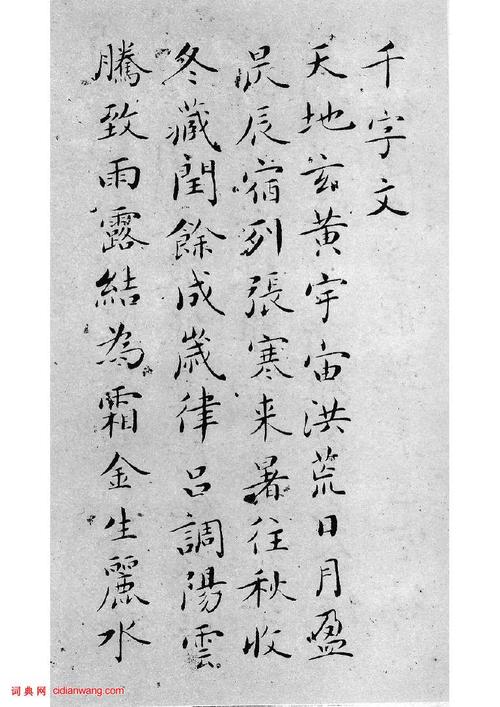 千字文
天地玄黃宇宙洪荒日月盈
昃辰宿列張寒来暑往秋收
冬藏閏餘成歲律吕調陽雲
騰致雨露結為霜金生麗水
词典网 cidianwang.com